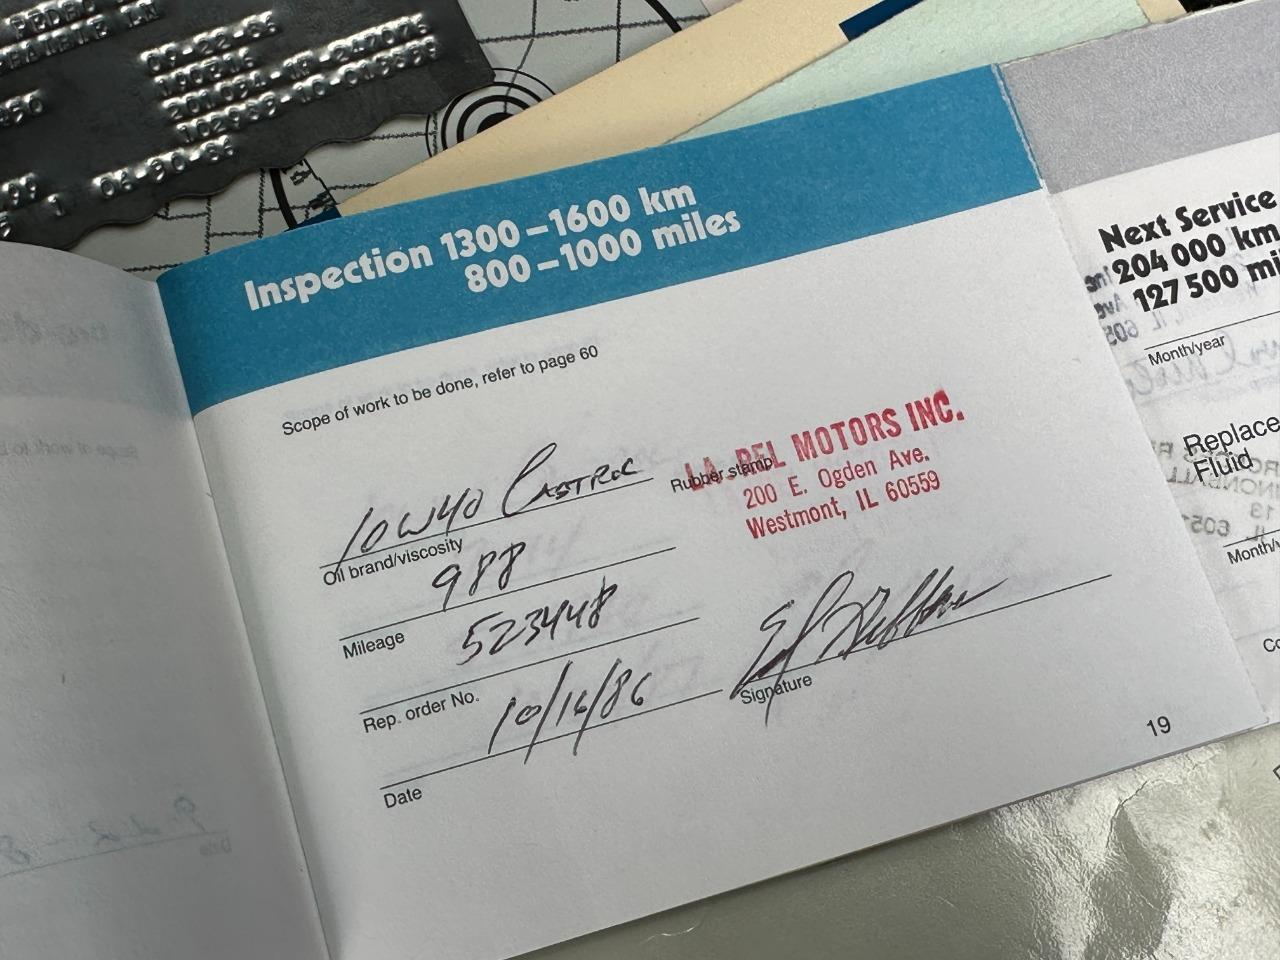 PEDRO
09-22-86
102968-10-019839
04-30-86
Inspection 1300–1600 km
800–1000 miles
Scope of work to be done, refer to page 60
10W40 Castrol
Oil brand/viscosity
988
Mileage
523448
Rep. order No.
10/16/86
Date
LA BEL MOTORS INC.
Rubber stamp
200 E. Ogden Ave.
Westmont, IL 60559
Signature
19
Next Service
204 000 km
127 500 mi
Month/year
Replace
Fluid
Month/y
Co